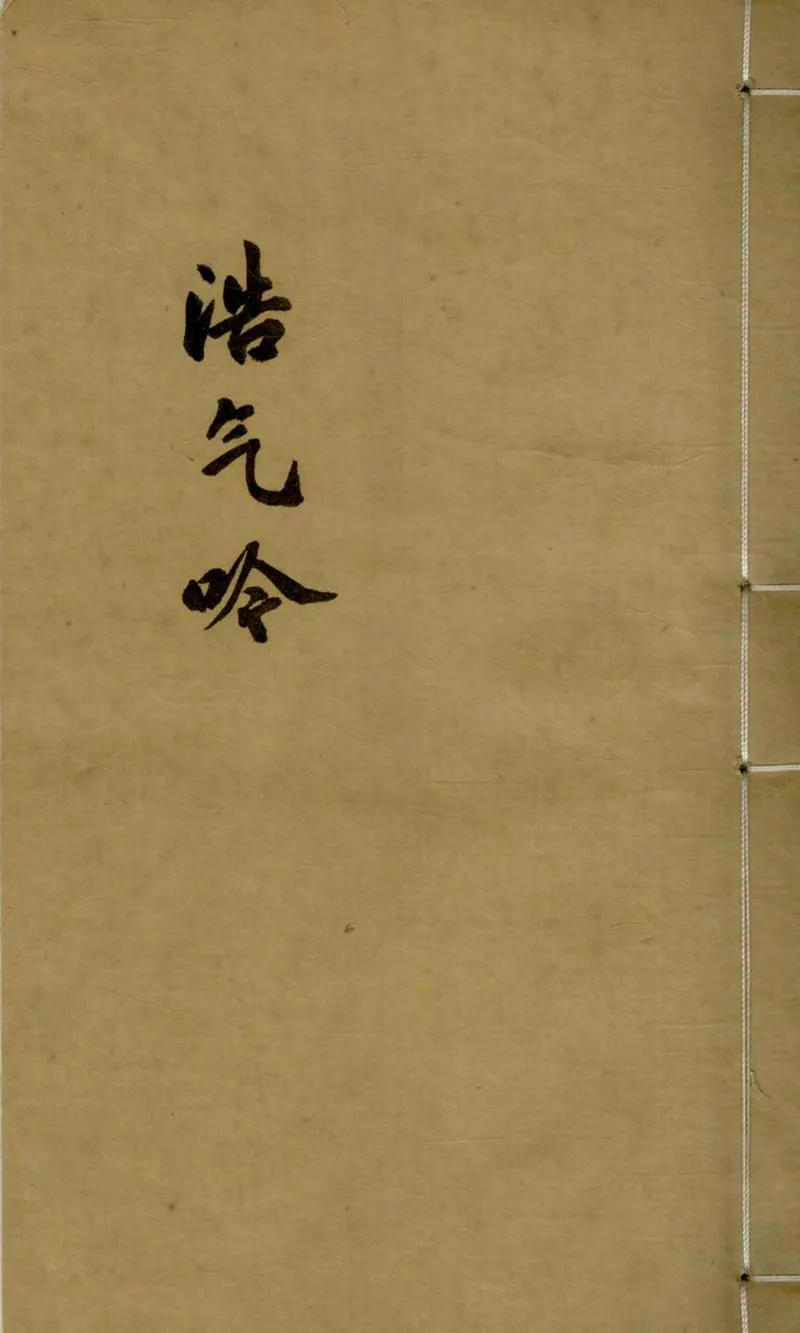 浩气吟